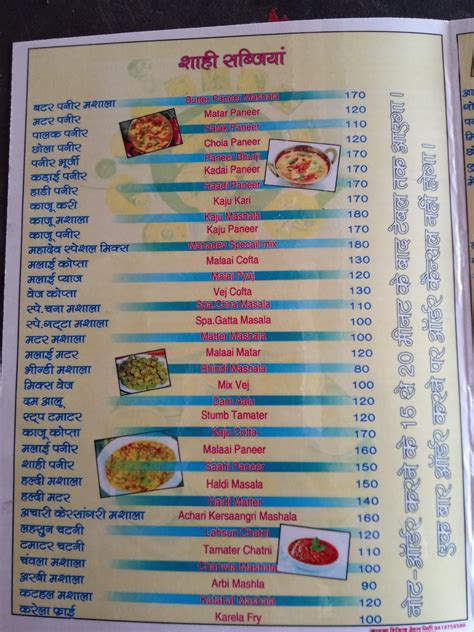 शाही सब्जियां
बटर पनीर मशाला Butter Paneer Mashala 170
मटर पनीर Matar Paneer 120
पालक पनीर Palak Paneer 110
छोला पनीर Chola Paneer 120
पनीर भूर्जी Paneer Bhurji 170
कड़ाई पनीर Kadai Paneer 170
हाडी पनीर Haadi Paneer 170
काजू करी Kaju Kari 170
काजू मशाला Kaju Mashala 180
काजू पनीर Kaju Paneer 170
महादेव स्पेशल मिक्स mix 180
मलाई कोप्ता Malaai Cofta 130
मलाई प्याज Malai Pyaj 120
वेज कोप्ता Vej Cofta 130
स्पे.चना मशाला Spa.Chana Masala 100
स्पे.गट्टा मशाला Spa.Gatta Masala 100
मटर मशाला Matter Mashala 100
मलाई मटर Malaai Matar 120
भीन्डी मशाला Bhindi Mashala 80
मिक्स वेज Mix Vej 100
दम आलू Dam Aalu 120
स्टूप टमाटर Stumb Tamater 100
काजू कोप्ता Kaju Cofta 170
मलाई पनीर Malaai Paneer 160
शाही पनीर Saahi Paneer 150
हल्दी मशाला Haldi Masala 150
हल्दी मटर Matter
अचारी केरसांगरी मशाला Achari Kersaangri Mashala 160
लहसुन चटनी Lahsun Chatni 120
टमाटर चटनी Tamater Chatni 120
चंवला मशाला Mashala 100
अरबी मशाला Arbi Mashla 120
कटहल मशाला Katahal Mashala 100
करेला फ्राई Karela Fry 100
नोट-ऑर्डर करने के 15 से 20 मीनट के बाद टेबल तक आइगा।
एक बार ऑर्डर करने पर ऑर्डर केन्सल नहीं होगा।